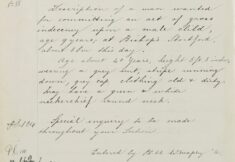 Description of a man wanted
for committing an act of gross
indecency upon a male child,
age 9 years, at Bishops Stortford,
about 6 pm this day.
Age about 40 years, height 5ft 5 inches,
wearing a grey suit, stripe running
down, grey cap clothing old & dirty
May have a green & white
neckerchief round neck.
Special enquiry to be made
throughout your Section